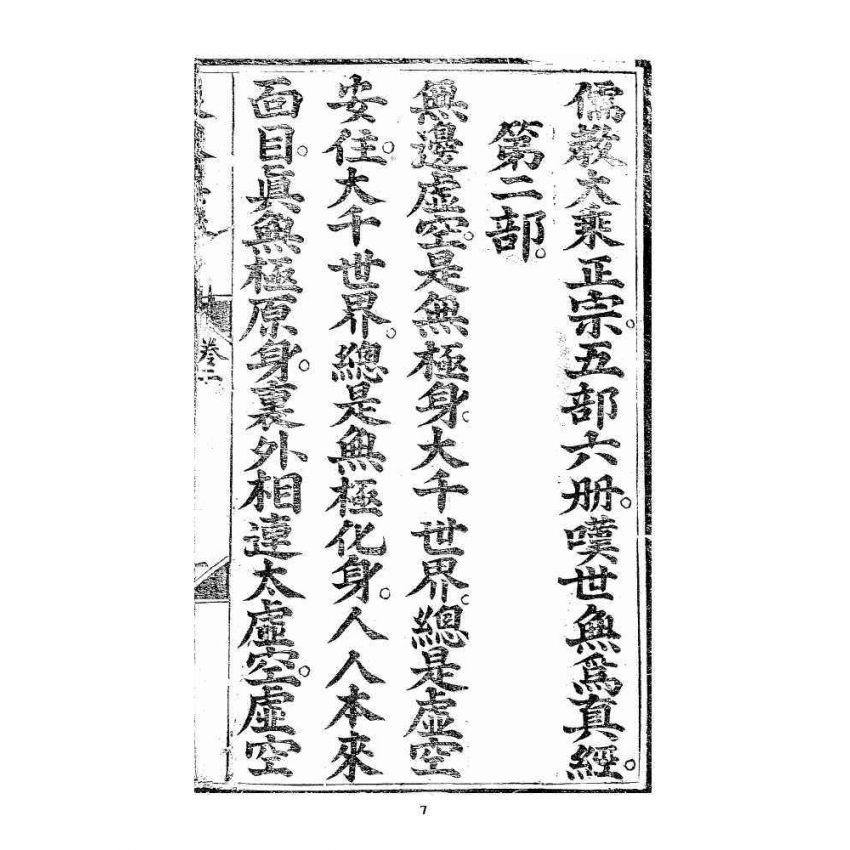 儒教大乘正宗。五部六册。嘆世無爲真經。
第二部。
無邊虛空。是無極身。大千世界。總是虛空
安住。大千世界。總是無極化身。人人本來
面目。眞無極原身。裏外相連太虛空。虛空
卷二
7